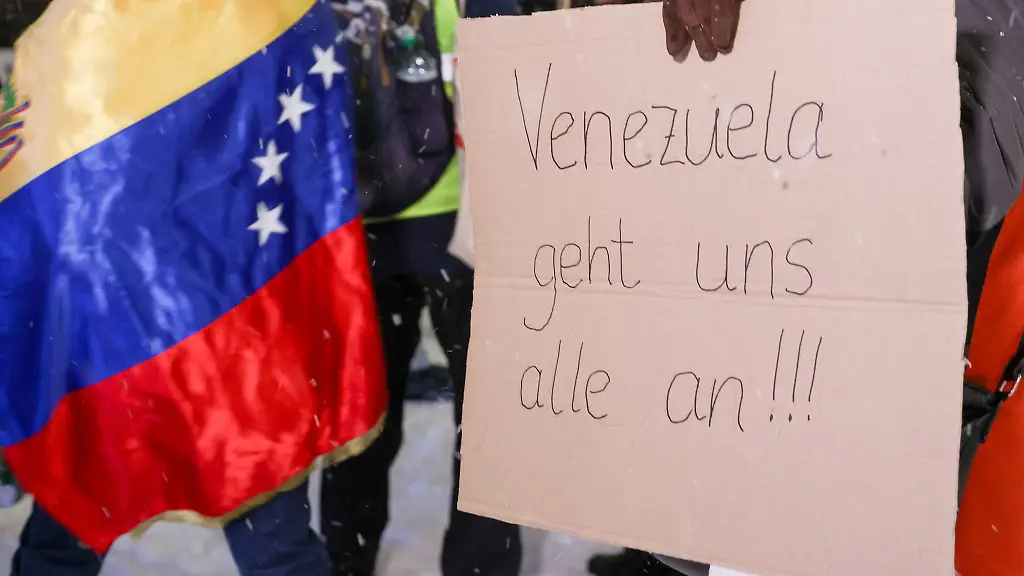 Venezuela
geht uns
alle an!!!